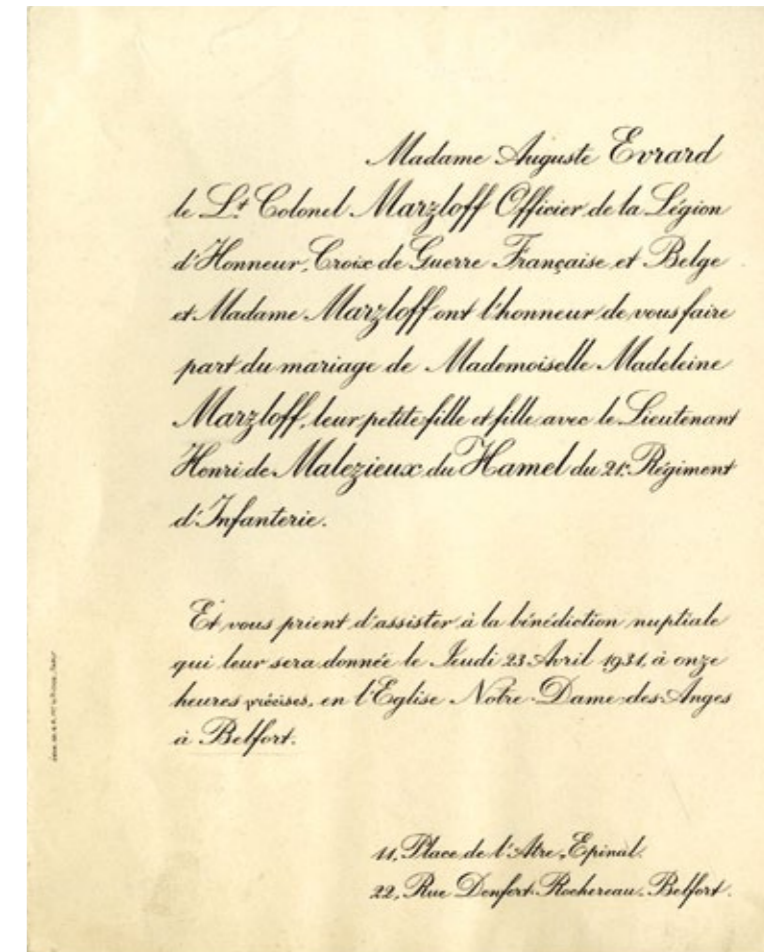 Madame Auguste Evrard
le Lt Colonel Marzloff Officier de la Légion
d'Honneur, Croix de Guerre Française et Belge
et Madame Marzloff ont l'honneur de vous faire
part du mariage de Mademoiselle Madeleine
Marzloff, leur petite fille et fille avec le Lieutenant
Henri de Malezieux du Hamel du 21e Régiment
d'Infanterie.
Et vous prient d'assister à la bénédiction nuptiale
qui leur sera donnée le Jeudi 23 Avril 1931, à onze
heures précises, en l'Eglise Notre-Dame-des-Anges
à Belfort.
11, Place de l'Atre, Epinal.
22, Rue Denfert-Rochereau. Belfort.